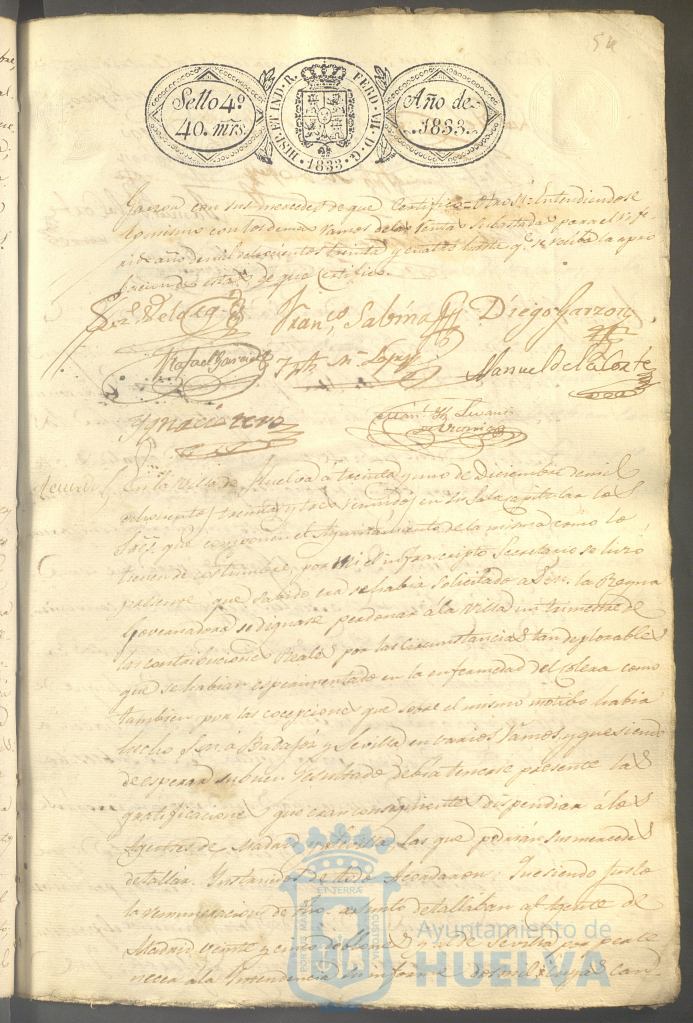 54
Sello 4º
40. mrs.
HISP. ET IND. R. FERD. VII. D. G.
.1833.
Año de
.1833.
Garzon con sus mercedes de que Certifico = Otro si = Entendiendose
lo mismo con los demas ramos de la renta subastada para el
año de mil ochocientos treinta y cuatro hasta qe. se reciba la apro
bacion de de que Certifico.
Velazqz Franco. Sabina Diego Garzon
Rafael Garcia Lopez Manuel de la Corte
Ygnacio rero
Manl.
En la villa de Huelva á treinta y uno de Diciembre de mil
ochocientos treinta y tres reunidos en su Sala capitular los S
Sres. que componen el Ayuntamiento de la misma como lo
tienen de costumbre, por mi el infrascripto Secretario se hizo
presente que sabido era se habia solicitado a la Reyna
Governadora se dignase perdonar á la villa un trimestre de
las contribuciones Reales por las circunstancias tan deplorables
que se habian esperimentado en la enfermedad del colera como
tambien por las que sobre el mismo motibo habia
hecho á Badajoz y Sevilla en varios ramos y que siendo
de esperar su buen resultado debia tenerse presente las
gratificaciones que eran consiguientes dispendiar á los
Agentes de Madrid y Sevilla las que podrán sus mercedes
detallar. de todo Acordaron: Que siendo justo
la remuneracion de asunto detallaban al Agente de
Madrid veinte y cinco doblones y al de Sevilla por
necer a la Intendencia su informe dos mil cuyas
ET TERRÆ
Ayuntamiento de
HUELVA